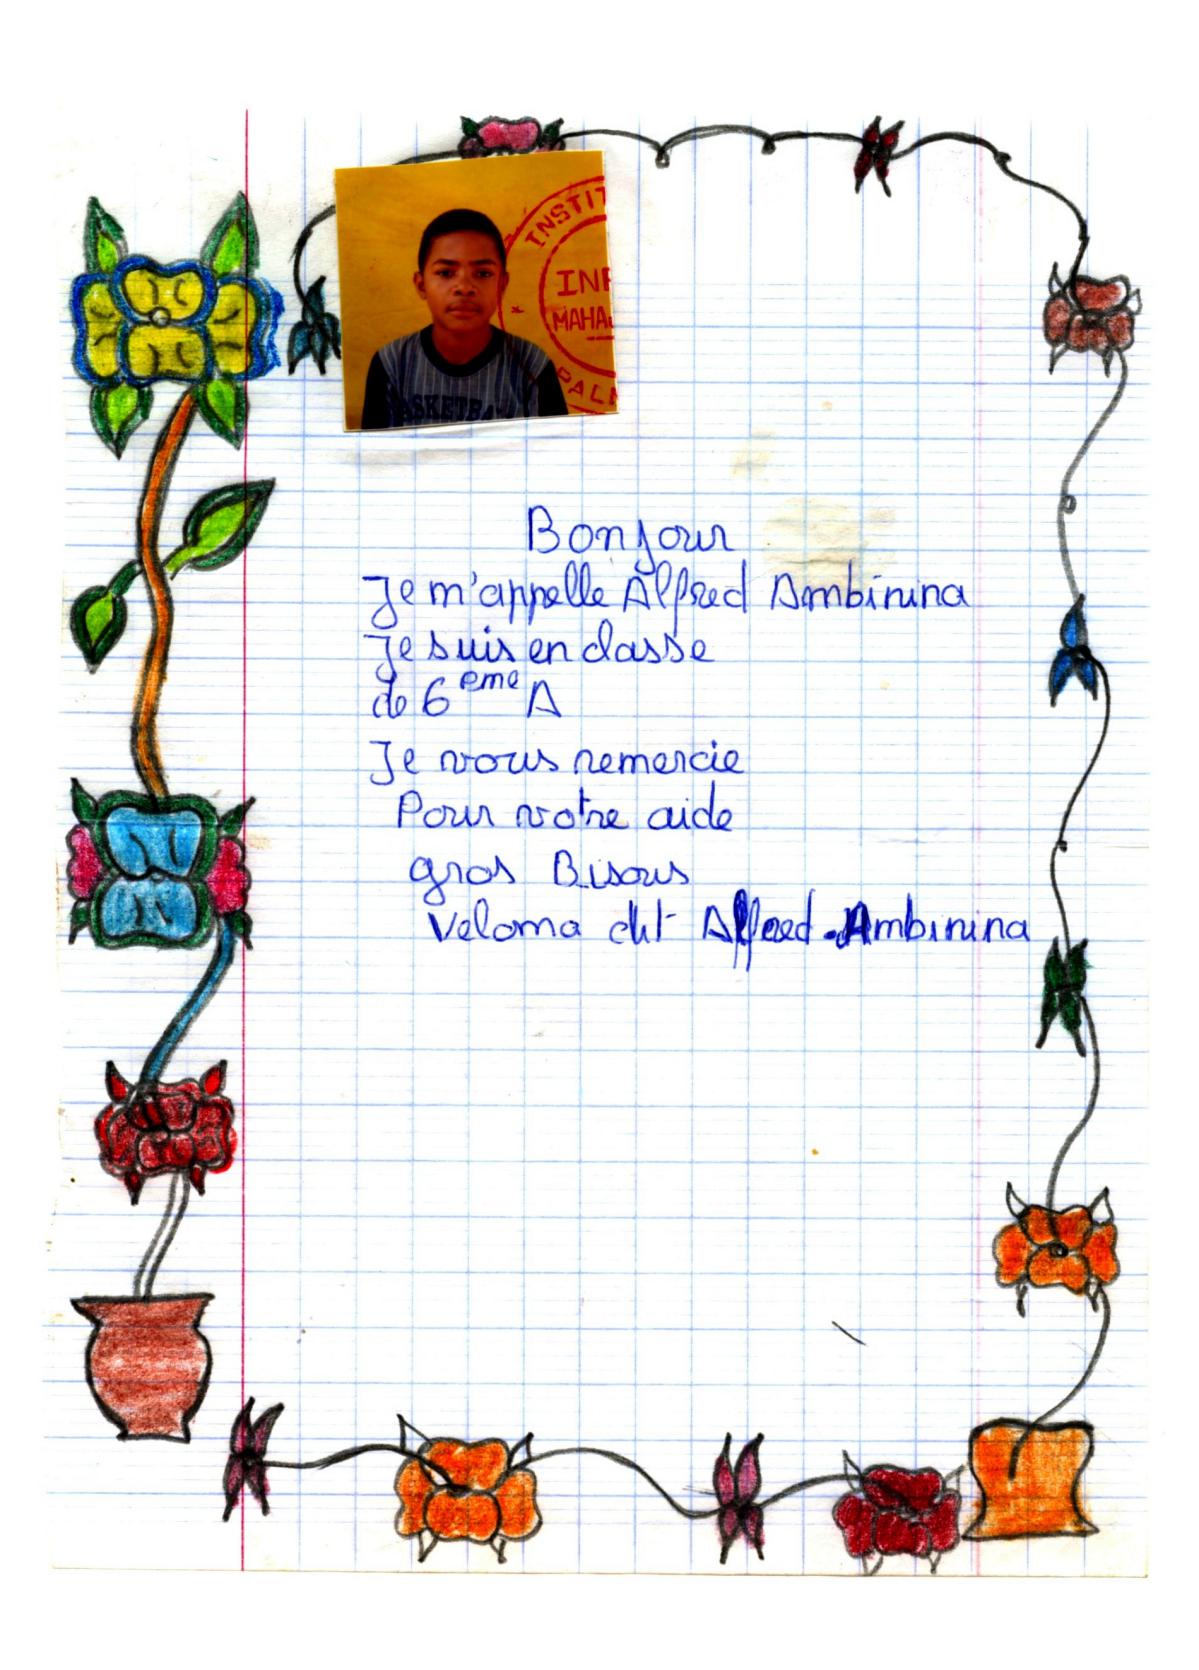 INSTIT
INF
MAHA
PALM
BASKETBA
Bonjour
Je m'appelle Alfred Ambinina
Je suis en classe
de 6 eme A
Je vous remercie
Pour votre aide
gros Bisous
Veloma dit Alfred Ambinina